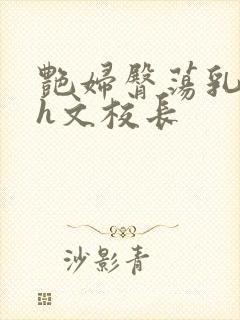 艳婦臀荡乳
h文校長
沙影青